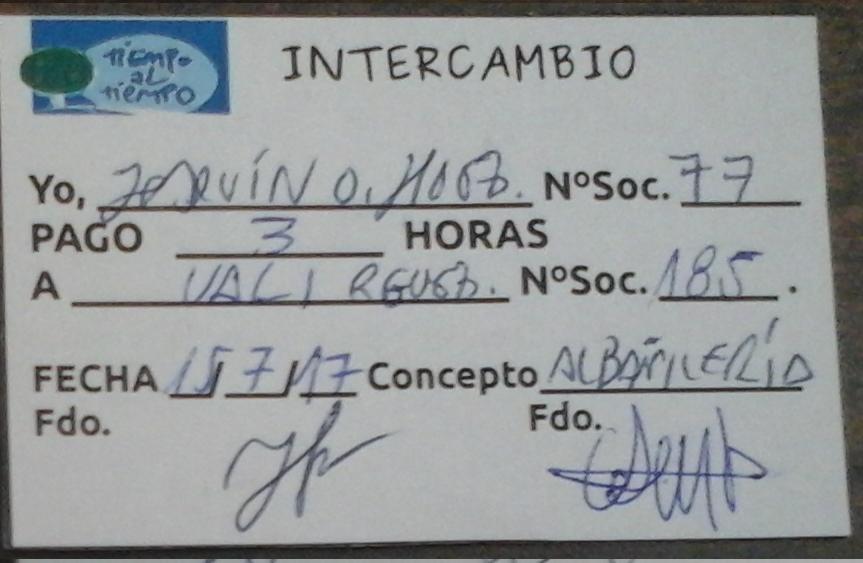 TiEMPO
AL
TiEMPO
INTERCAMBIO
Yo, JOAQUÍN O. NºSoc. 77
PAGO 3 HORAS
A VALI RGUEZ. NºSoc. 185.
FECHA 15/7/17 Concepto ALBAÑILERÍA
Fdo. Fdo.